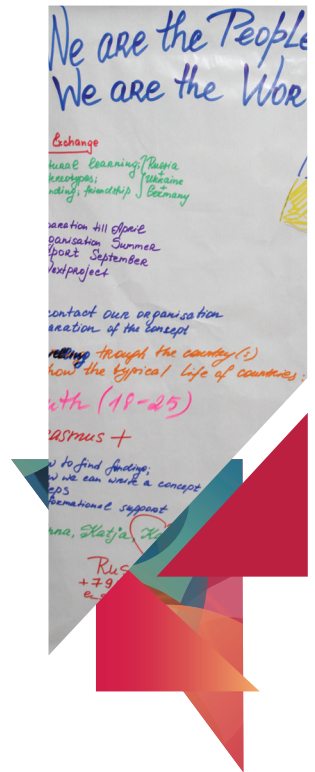 We are the People
We are the Wor
Exchange
tural learning; Russia
+
ereotypes; Ukraine
+
nding, friendship Germany
paration till April
ganisation Summer
port September
Nextproject
contact our organisation
anation of the concept
trough the country(s)
how the typical life of countries:
uth (18-25)
rasmus +
w to find funding;
w we can write a concept
eps
formational support
nna, Katja, Ka
Rus
+79